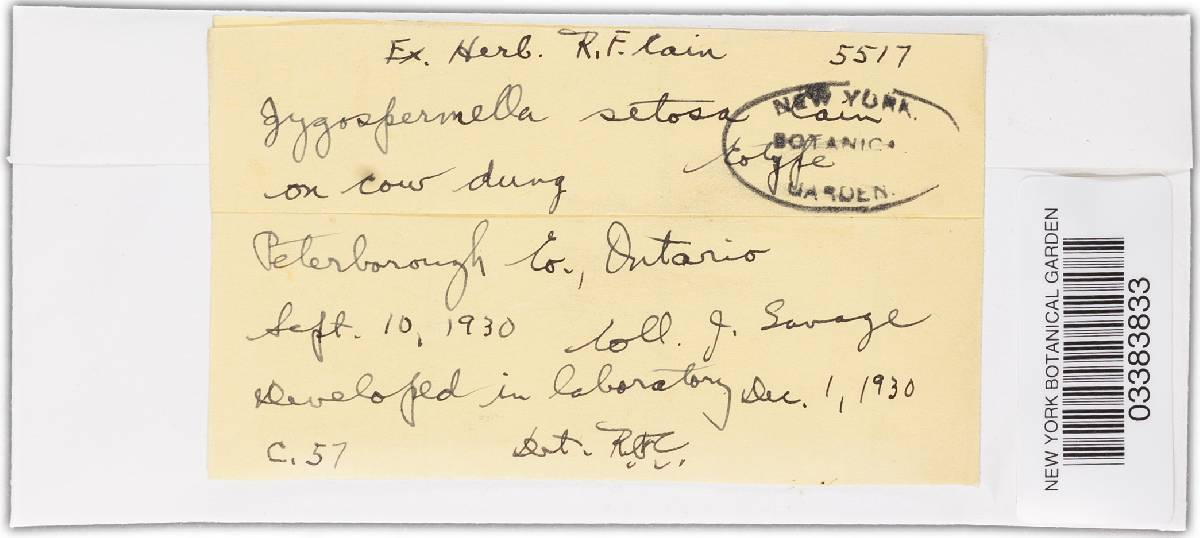 Ex. Herb. R.F. Cain 5517
Zygospermella setosa Cain
Cotype
on cow dung
NEW YORK
BOTANICA
GARDEN.
Peterborough Co., Ontario
Sept. 10, 1930 Coll. J. Savage
Developed in laboratory Dec. 1, 1930
C. 57 Det. R.F.C.
NEW YORK BOTANICAL GARDEN
03383833